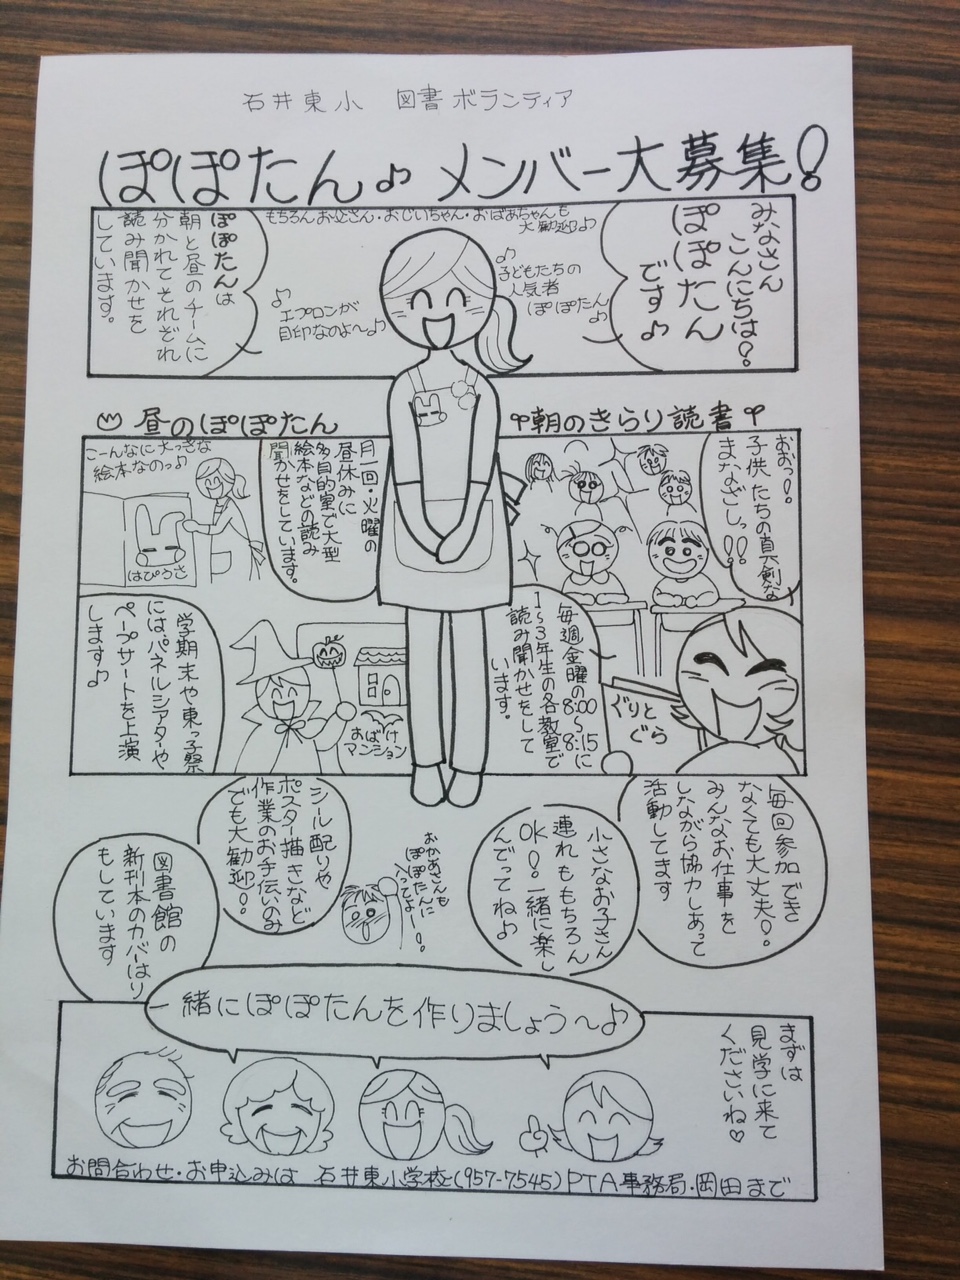 石井東小 図書ボランティア
ぽぽたん♪メンバー大募集!
みなさん
こんにちは?
ぽぽたん
です♪
もちろんお父さん・おじいちゃん・おばあちゃんも
大歓迎♪
♪
子どもたちの
人気者
ぽぽたん♪
♪
エプロンが
目印なのよ〜♪
ぽぽたんは
朝と昼のチームに
分かれてそれぞれ
読み聞かせを
しています。
朝のきらり読書
おおっ!
子供たちの真剣な
まなざしっ!!
毎週金曜の8:00〜8:15に
1〜3年生の各教室で
読み聞かせをして
います。
ぐりと
ぐら
昼のぽぽたん
月一回・火曜の
昼休みに
多目的室で大型
絵本などの読み
聞かせをしています。
こーんなに大っきな
絵本なのっ♪
はぴうさ
学期末や東っ子祭
には、パネルシアターや
ペープサートを上演
します♪
おばけ
マンション
毎回参加でき
なくても大丈夫!
みんなお仕事を
しながら協力しあって
活動してます
小さなお子さん
連れももちろん
OK!一緒に楽し
んでってね♪
おかあさんも
ぽぽたんに
入ってよー!
シール配りや
ポスター描きなど
作業のお手伝いのみ
でも大歓迎!
図書館の
新刊本のカバーはり
もしています
一緒にぽぽたんを作りましょう〜♪
まずは
見学に来て
くださいね♡
お問合わせ・お申込みは 石井東小学校(957-7545)PTA事務局・岡田まで